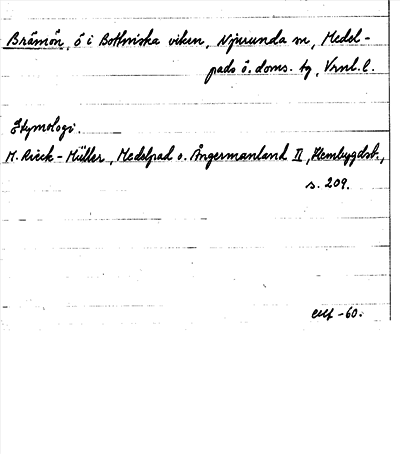 Brämön, ö i Bottniska viken, Njurunda sn, Medel-
pads ö. doms. tg, Vrnl. l.
Etymologi.
M. Rieck-Müller, Medelpad o. Ångermanland II, Hembygdsb.,
s. 209.
-60.